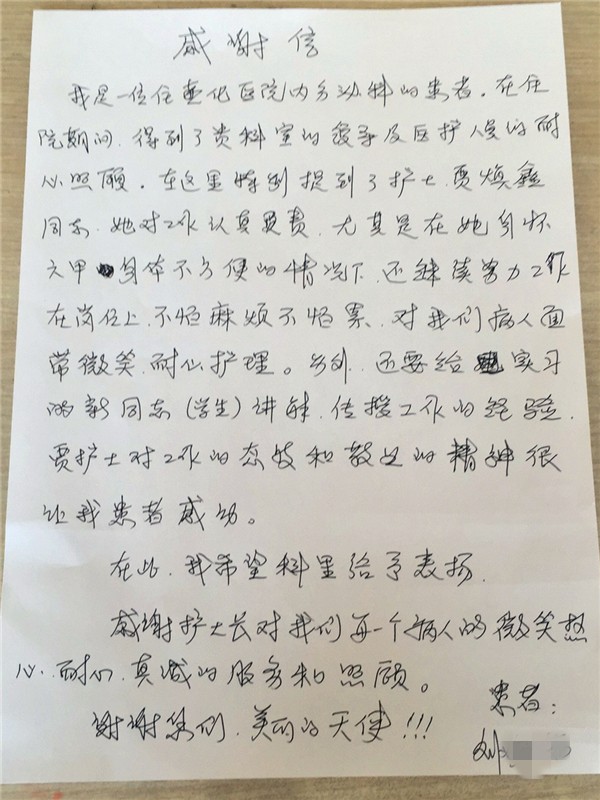 感谢信
我是一位住重化医院内分泌科的患者。在住
院期间,得到了贵科室的领导及医护人员的耐
心照顾。在这里特别提到了护士,贾焕鑫
同志,她对工作认真负责,尤其是在她身怀
六甲身体不方便的情况下,还继续努力工作
在岗位上,不怕麻烦不怕累,对我们病人面
带微笑,耐心护理。另外,还要给实习
的新同志(学生)讲解,传授工作的经验,
贾护士对工作的态度和敬业的精神很
让我患者感动。
在此,我希望科里给予表扬,
感谢护士长对我们每一个病人的微笑热
心、耐心、真诚的服务和照顾。
谢谢您们,美丽的天使!!!
患者:
刘